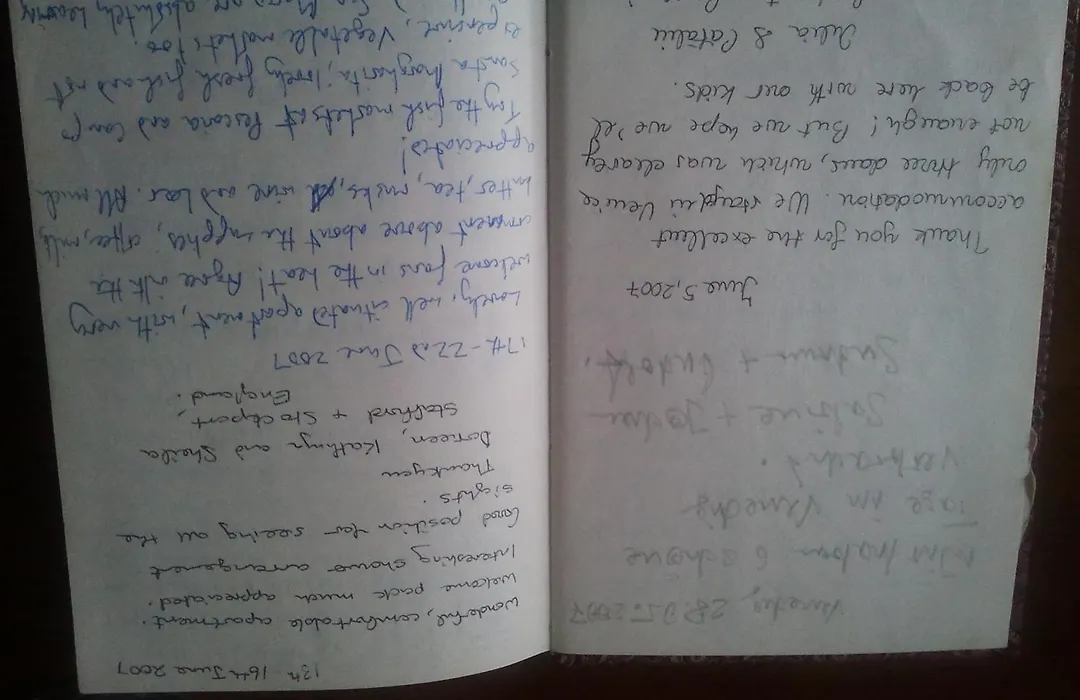 Venedig, 28.05.2007
Wir haben 6 schöne
Tage in Venedig
verbracht.
Sabine +
+ Rudolf.
June 5, 2007
Thank you for the excellent
accommodation. We stayed in Venice
only three days, which was clearly
not enough! But we hope we'll
be back here with our kids.
Julia & Cătălin
13th - 16th June 2007
wonderful, comfortable apartment.
welcome pack much appreciated.
Interesting shower arrangement
Good position for seeing all the
sights.
Thankyou
Doreen, Kathryn and Sheila
Stafford + Stockport,
England.
17th - 22nd June 2007
Lovely, well situated apartment, with very
welcome fans in the heat! Agree with the
comment above about the supplies, coffee, milk,
butter, tea, rusks, wine and beer. All much
appreciated!
Try the fish markets at Pescaria and Campo
Santa Margharita; lovely fresh fish and not
expensive. Vegetable markets too.
are absolutely